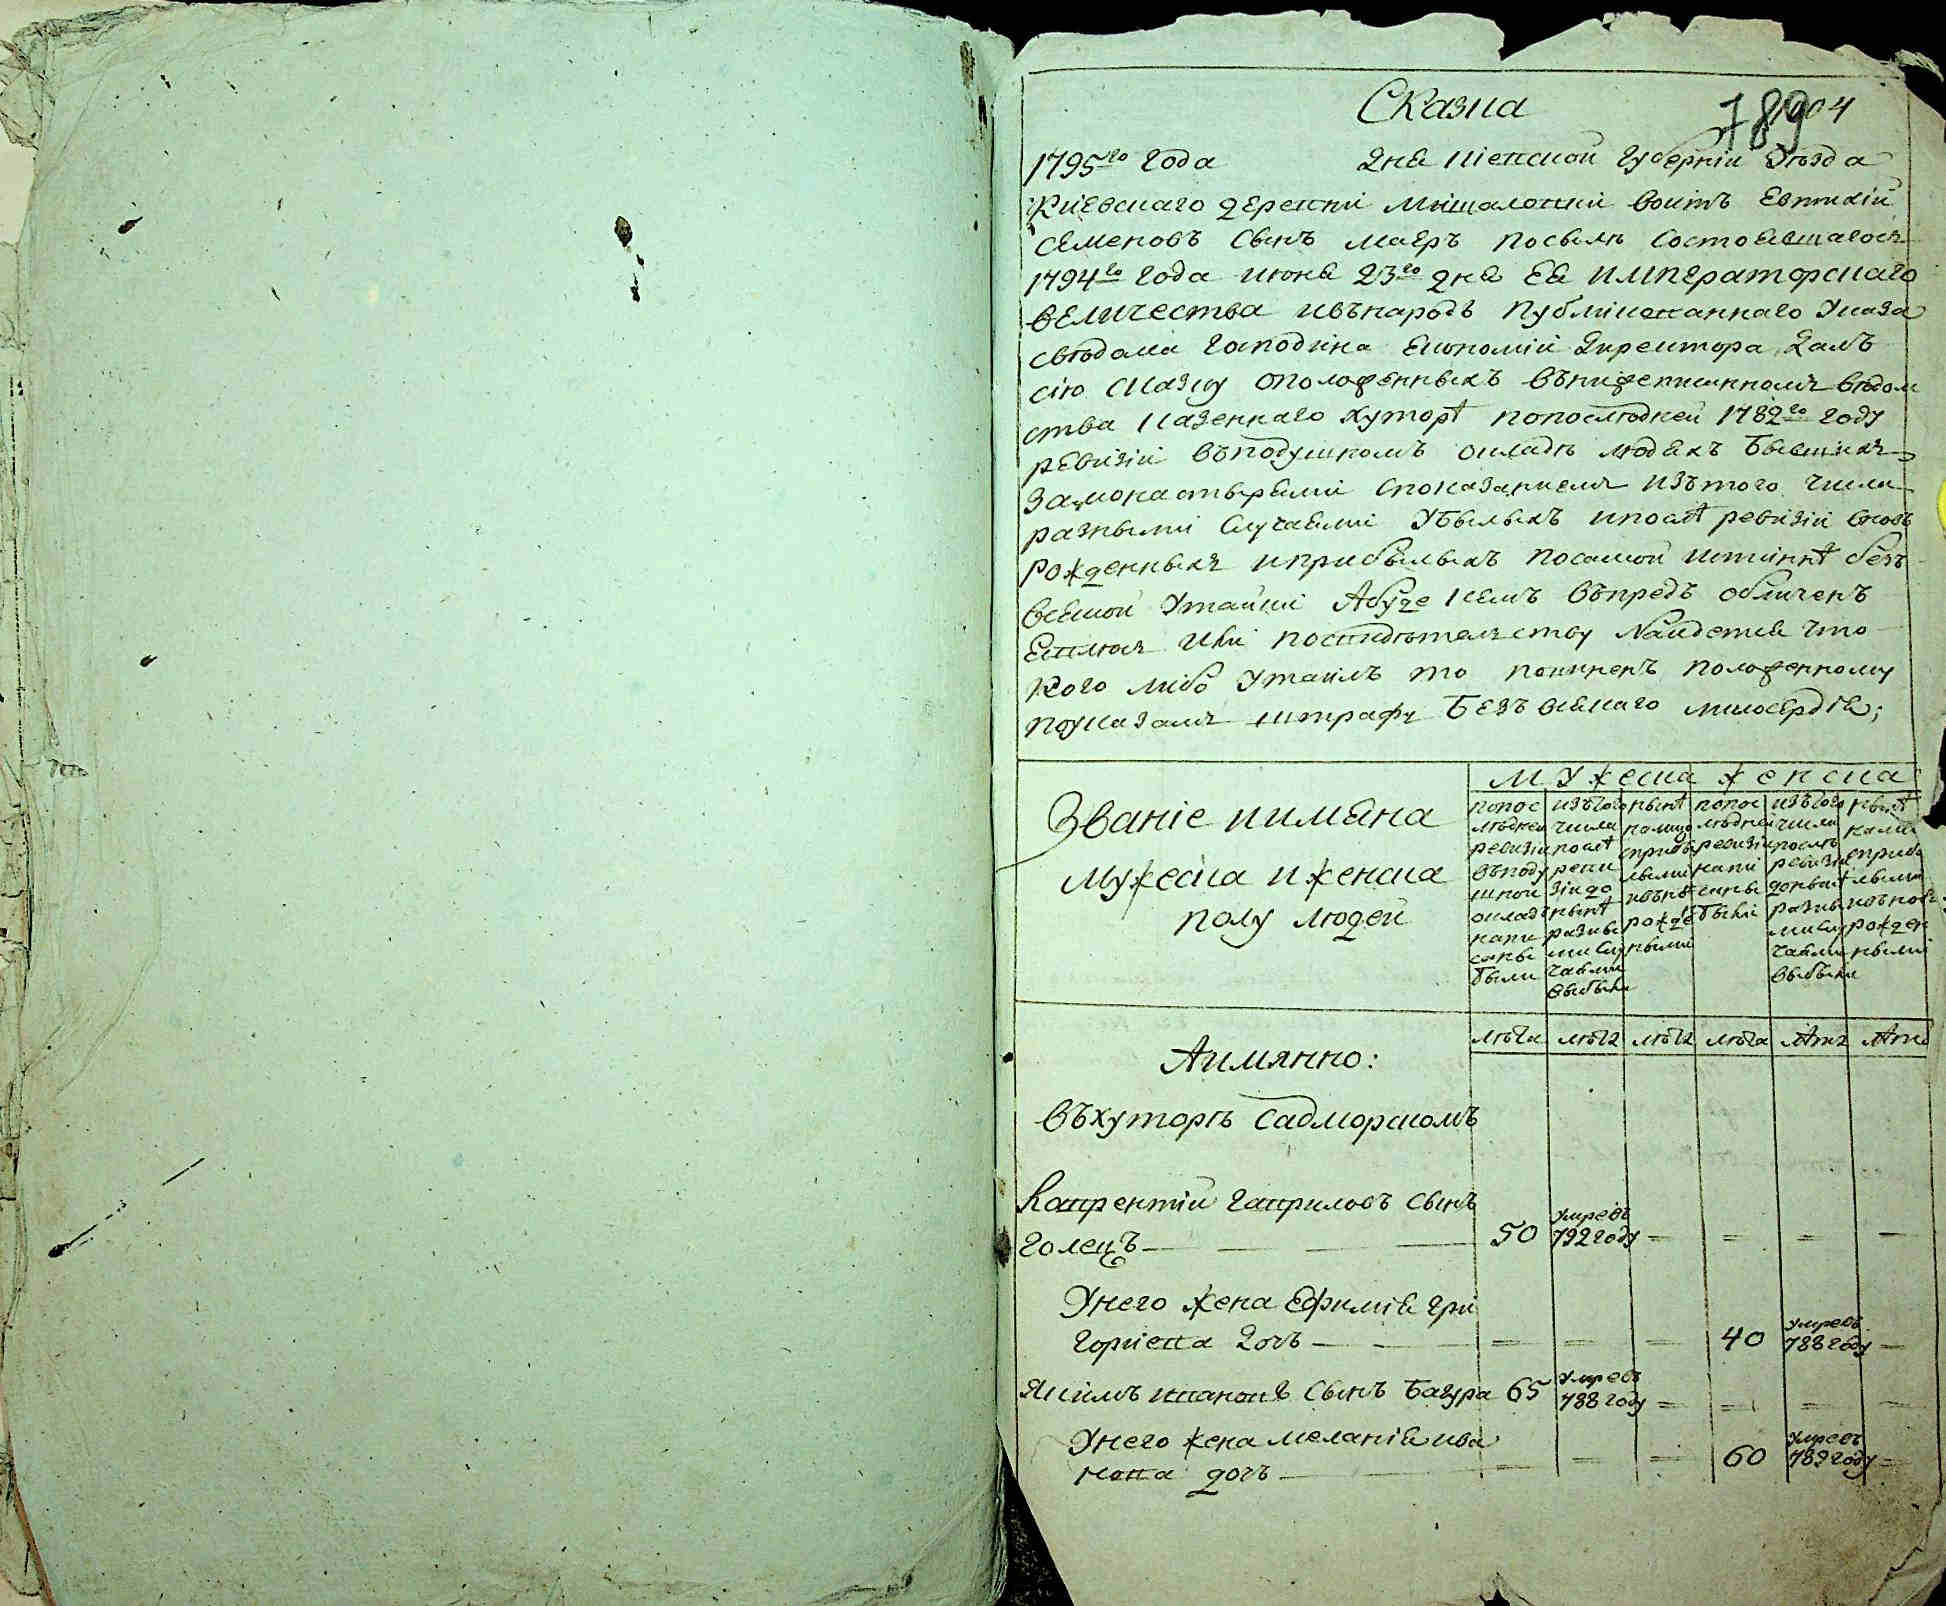 Сказка
789
1004
1795го года дня Киевской губернии уезда
Киевского деревни Мышаловки войтъ Евтихий
Семеновъ сынъ Маеръ по силе состоявшагося
1794го года июня 23го дня Ея Императорскаго
Величества и въ народъ публикованнаго указа
с ведома господина економии директора далъ
сию сказку о положенныхъ въ нижеписанномъ ведом
ства казеннаго хуторѣ по последней 1782го году
ревизии въ подушномъ окладе людехъ бывшихъ
за монастырями с показаниемъ изъ того числа
разными случаями убылыхъ и послѣ ревизии вновь
рожденныхъ и прибылыхъ по самой истиннѣ безъ
всякой утайки А буде кемъ въпредъ обличенъ
явлюсь или по свидетельству найдется что
кого либо утаилъ то повиненъ положенному
по указамъ штрафу безъ всякаго милосердия;
Звание и имяна
мужеска и женска
полу людей
мужеска женска
по пос
ледней
ревизии
въ поду
шной
окладъ
напи
саны
были
изъ того
числа
послѣ
реви
зии до
нынѣ
разны
ми слу
чаями
выбыли
нынѣ
на лицо
с прибы
лыми
и вънов
рожде
ными
по пос
ледней
ревизии
напи
саны
были
изъ того
числа
после
ревизии
до нынѣ
разны
ми слу
чаями
выбыли
нынѣ
на лицо
с прибы
лыми
и въновь
рожден
ными
лета лета лета лета лѣта лѣта
А имянно:
въ хуторе Садморскомъ
Лаврентий Гавриловъ сынъ
Голецъ — 50 умревъ 792 году
У него жена Ефимия Гри
гориева дочь — 40 умревъ 788 году
Якимъ Ивановъ сынъ Багура 65 умревъ 788 году
У него жена Мелания Ива
нова дочь — 60 умревъ 789 году